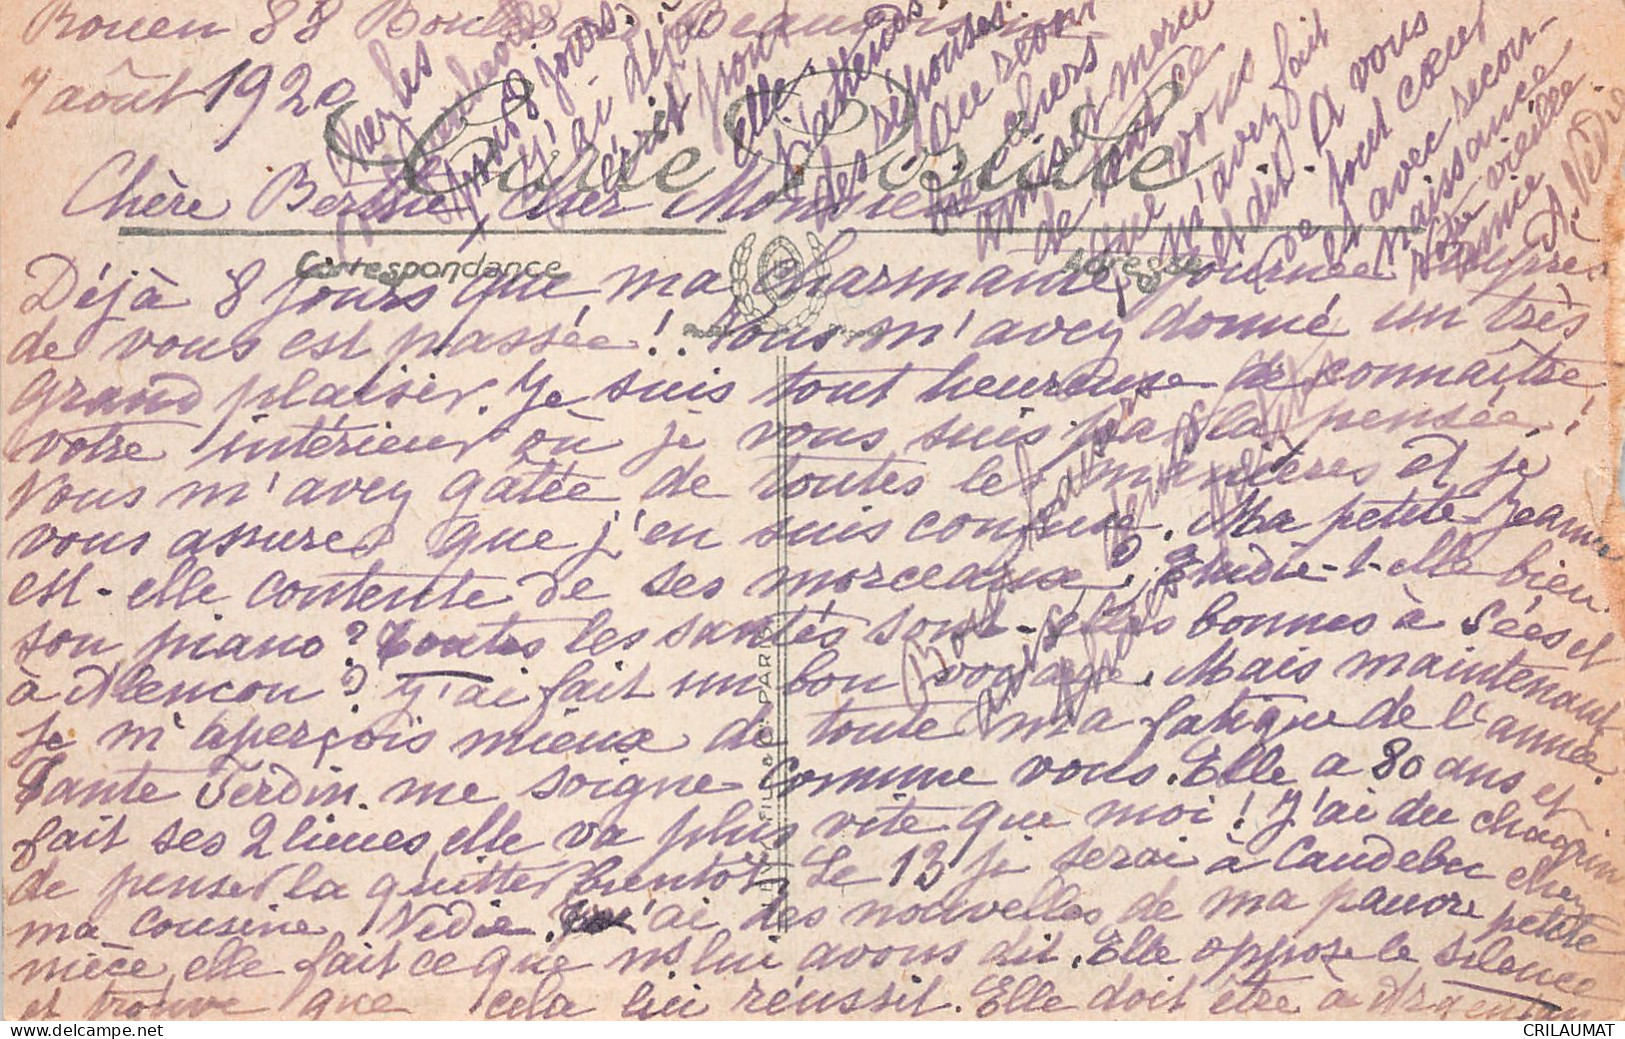 Rouen 88 Boulevard Beauvoisine
7 août 1920
Carte Postale
Chère Berthe, Cher Monsieur
Correspondance
Adresse
Déjà 8 jours que ma charmante journée auprès
de vous est passée ! Vous m'avez donné un très
grand plaisir. Je suis tout heureuse de connaître
votre intérieur où je vous suis par la pensée !
Vous m'avez gâtée de toutes les manières et je
vous assure que j'en suis confuse. Ma petite Jeanne
est-elle contente de ses morceaux ? Etudie-t-elle bien
son piano ? Toutes les santés sont-elles bonnes à Sées et
à Alençon ? J'ai fait un bon voyage. Mais maintenant
je m'aperçois mieux de toute ma fatigue de l'année.
Tante Ferdin. me soigne comme vous. Elle a 80 ans et
fait ses 2 lieues, elle va plus vite que moi ! J'ai du chagrin
de penser la quitter bientôt. Le 13 je serai à Caudebec chez
ma cousine Nédie. J'ai des nouvelles de ma pauvre petite
nièce, elle fait ce que ns lui avons dit. Elle oppose le silence
et trouve que cela lui réussit. Elle doit être à Argentan
chez les
pour 8 jours.
J'ai déjà
écrit
elle
j'attends
des réponses
chers
merci
de tout ce
que vous
m'avez fait
et dit. A vous
de tout cœur
et avec reconnaissance
votre vieille
amie
A. Nédie
Bons baisers